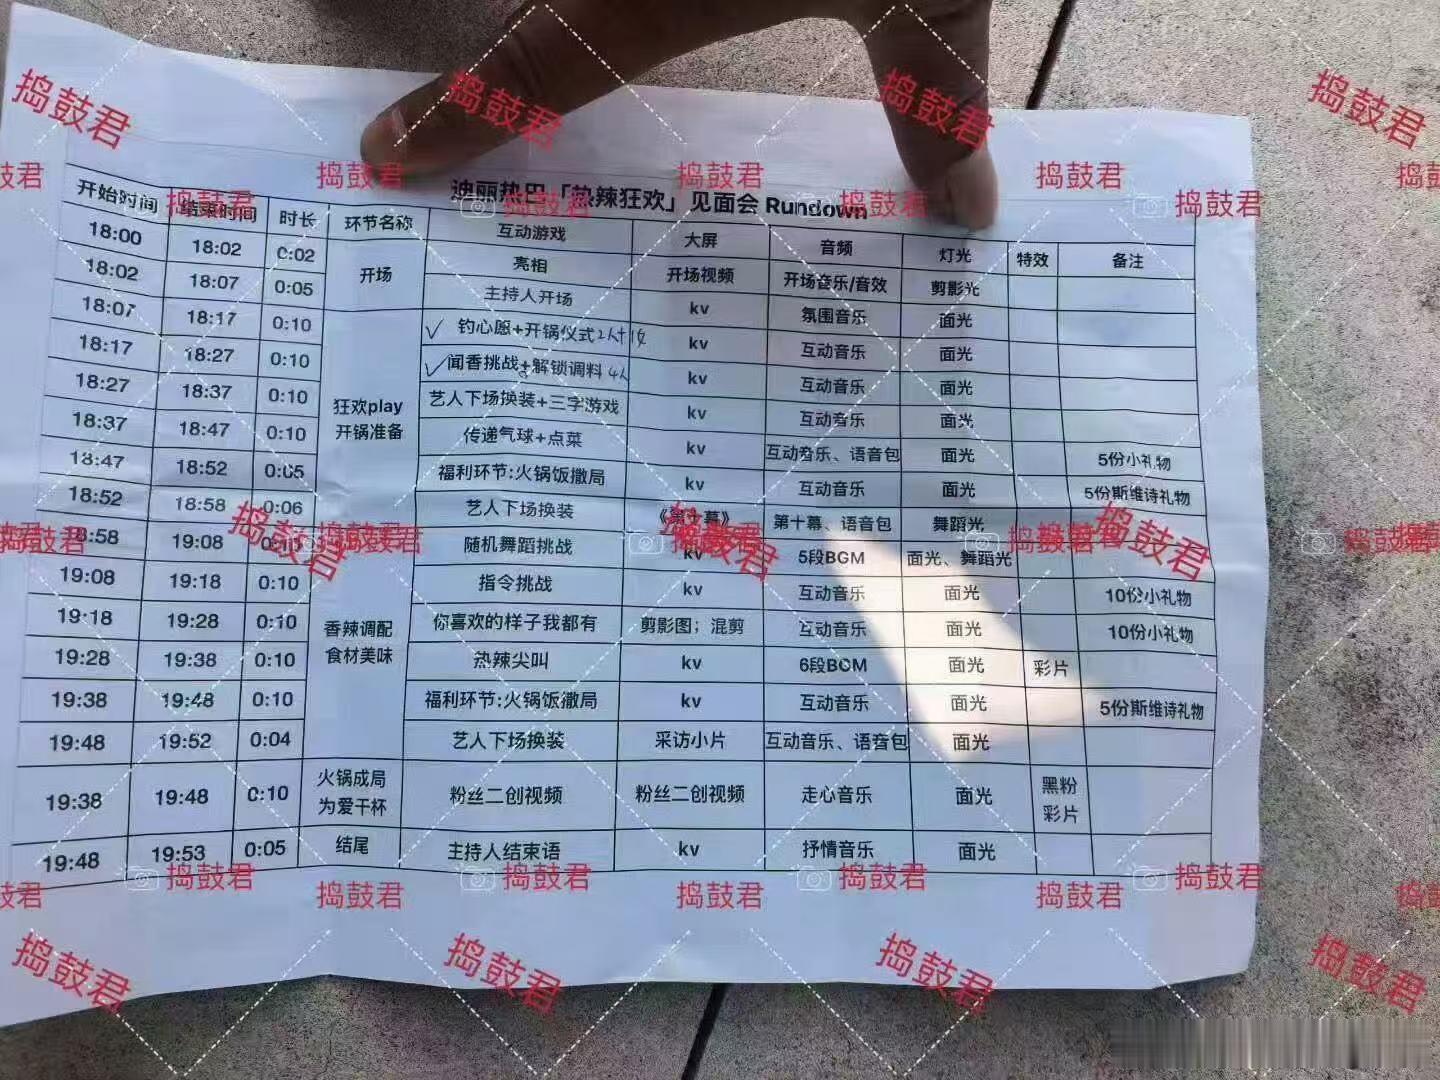 迪丽热巴「热辣狂欢」见面会 Rundown
开始时间 结束时间 时长 环节名称 互动游戏 大屏 音频 灯光 特效 备注
18:00 18:02 0:02 开场 亮相 开场视频 开场音乐/音效 剪影光
18:02 18:07 0:05 主持人开场 kv 氛围音乐 面光
18:07 18:17 0:10 狂欢play 开锅准备 ✓ 钓心愿+开锅仪式 kv 互动音乐 面光
18:17 18:27 0:10 ✓ 闻香挑战+解锁调料 4人 kv 互动音乐 面光
18:27 18:37 0:10 艺人下场换装+三字游戏 kv 互动音乐 面光
18:37 18:47 0:10 传递气球+点菜 kv 互动音乐、语音包 面光 5份小礼物
18:47 18:52 0:05 福利环节:火锅饭撒局 kv 互动音乐 面光 5份斯维诗礼物
18:52 18:58 0:06 艺人下场换装 《第十幕》 第十幕、语音包 舞蹈光
18:58 19:08 0:10 香辣调配 食材美味 随机舞蹈挑战 kv 5段BGM 面光、舞蹈光
19:08 19:18 0:10 指令挑战 kv 互动音乐 面光 10份小礼物
19:18 19:28 0:10 你喜欢的样子我都有 剪影图；混剪 互动音乐 面光 10份小礼物
19:28 19:38 0:10 热辣尖叫 kv 6段BGM 面光 彩片
19:38 19:48 0:10 福利环节:火锅饭撒局 kv 互动音乐 面光 5份斯维诗礼物
19:48 19:52 0:04 艺人下场换装 采访小片 互动音乐、语音包 面光
19:38 19:48 0:10 火锅成局 为爱干杯 粉丝二创视频 粉丝二创视频 走心音乐 面光 黑粉 彩片
19:48 19:53 0:05 结尾 主持人结束语 kv 抒情音乐 面光
捣鼓君